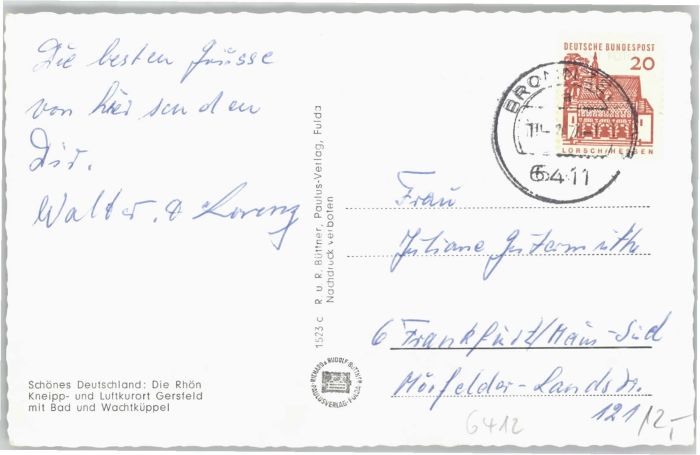 Die besten Grüsse
von hier senden
Dir.
Walter. & Lorenz
Schönes Deutschland: Die Rhön
Kneipp- und Luftkurort Gersfeld
mit Bad und Wachtküppel
1523 c R. u. R. Büttner, Paulus-Verlag, Fulda
Nachdruck verboten
RICHARD & RUDOLF BÜTTNER
PAULUSVERLAG · FULDA
DEUTSCHE BUNDESPOST
20
LORSCH/HESSEN
6411
Frau
Juliane Gutermuth
6 Frankfurt/Main-Süd
Mörfelder-Landstr.
121
12,-
6412